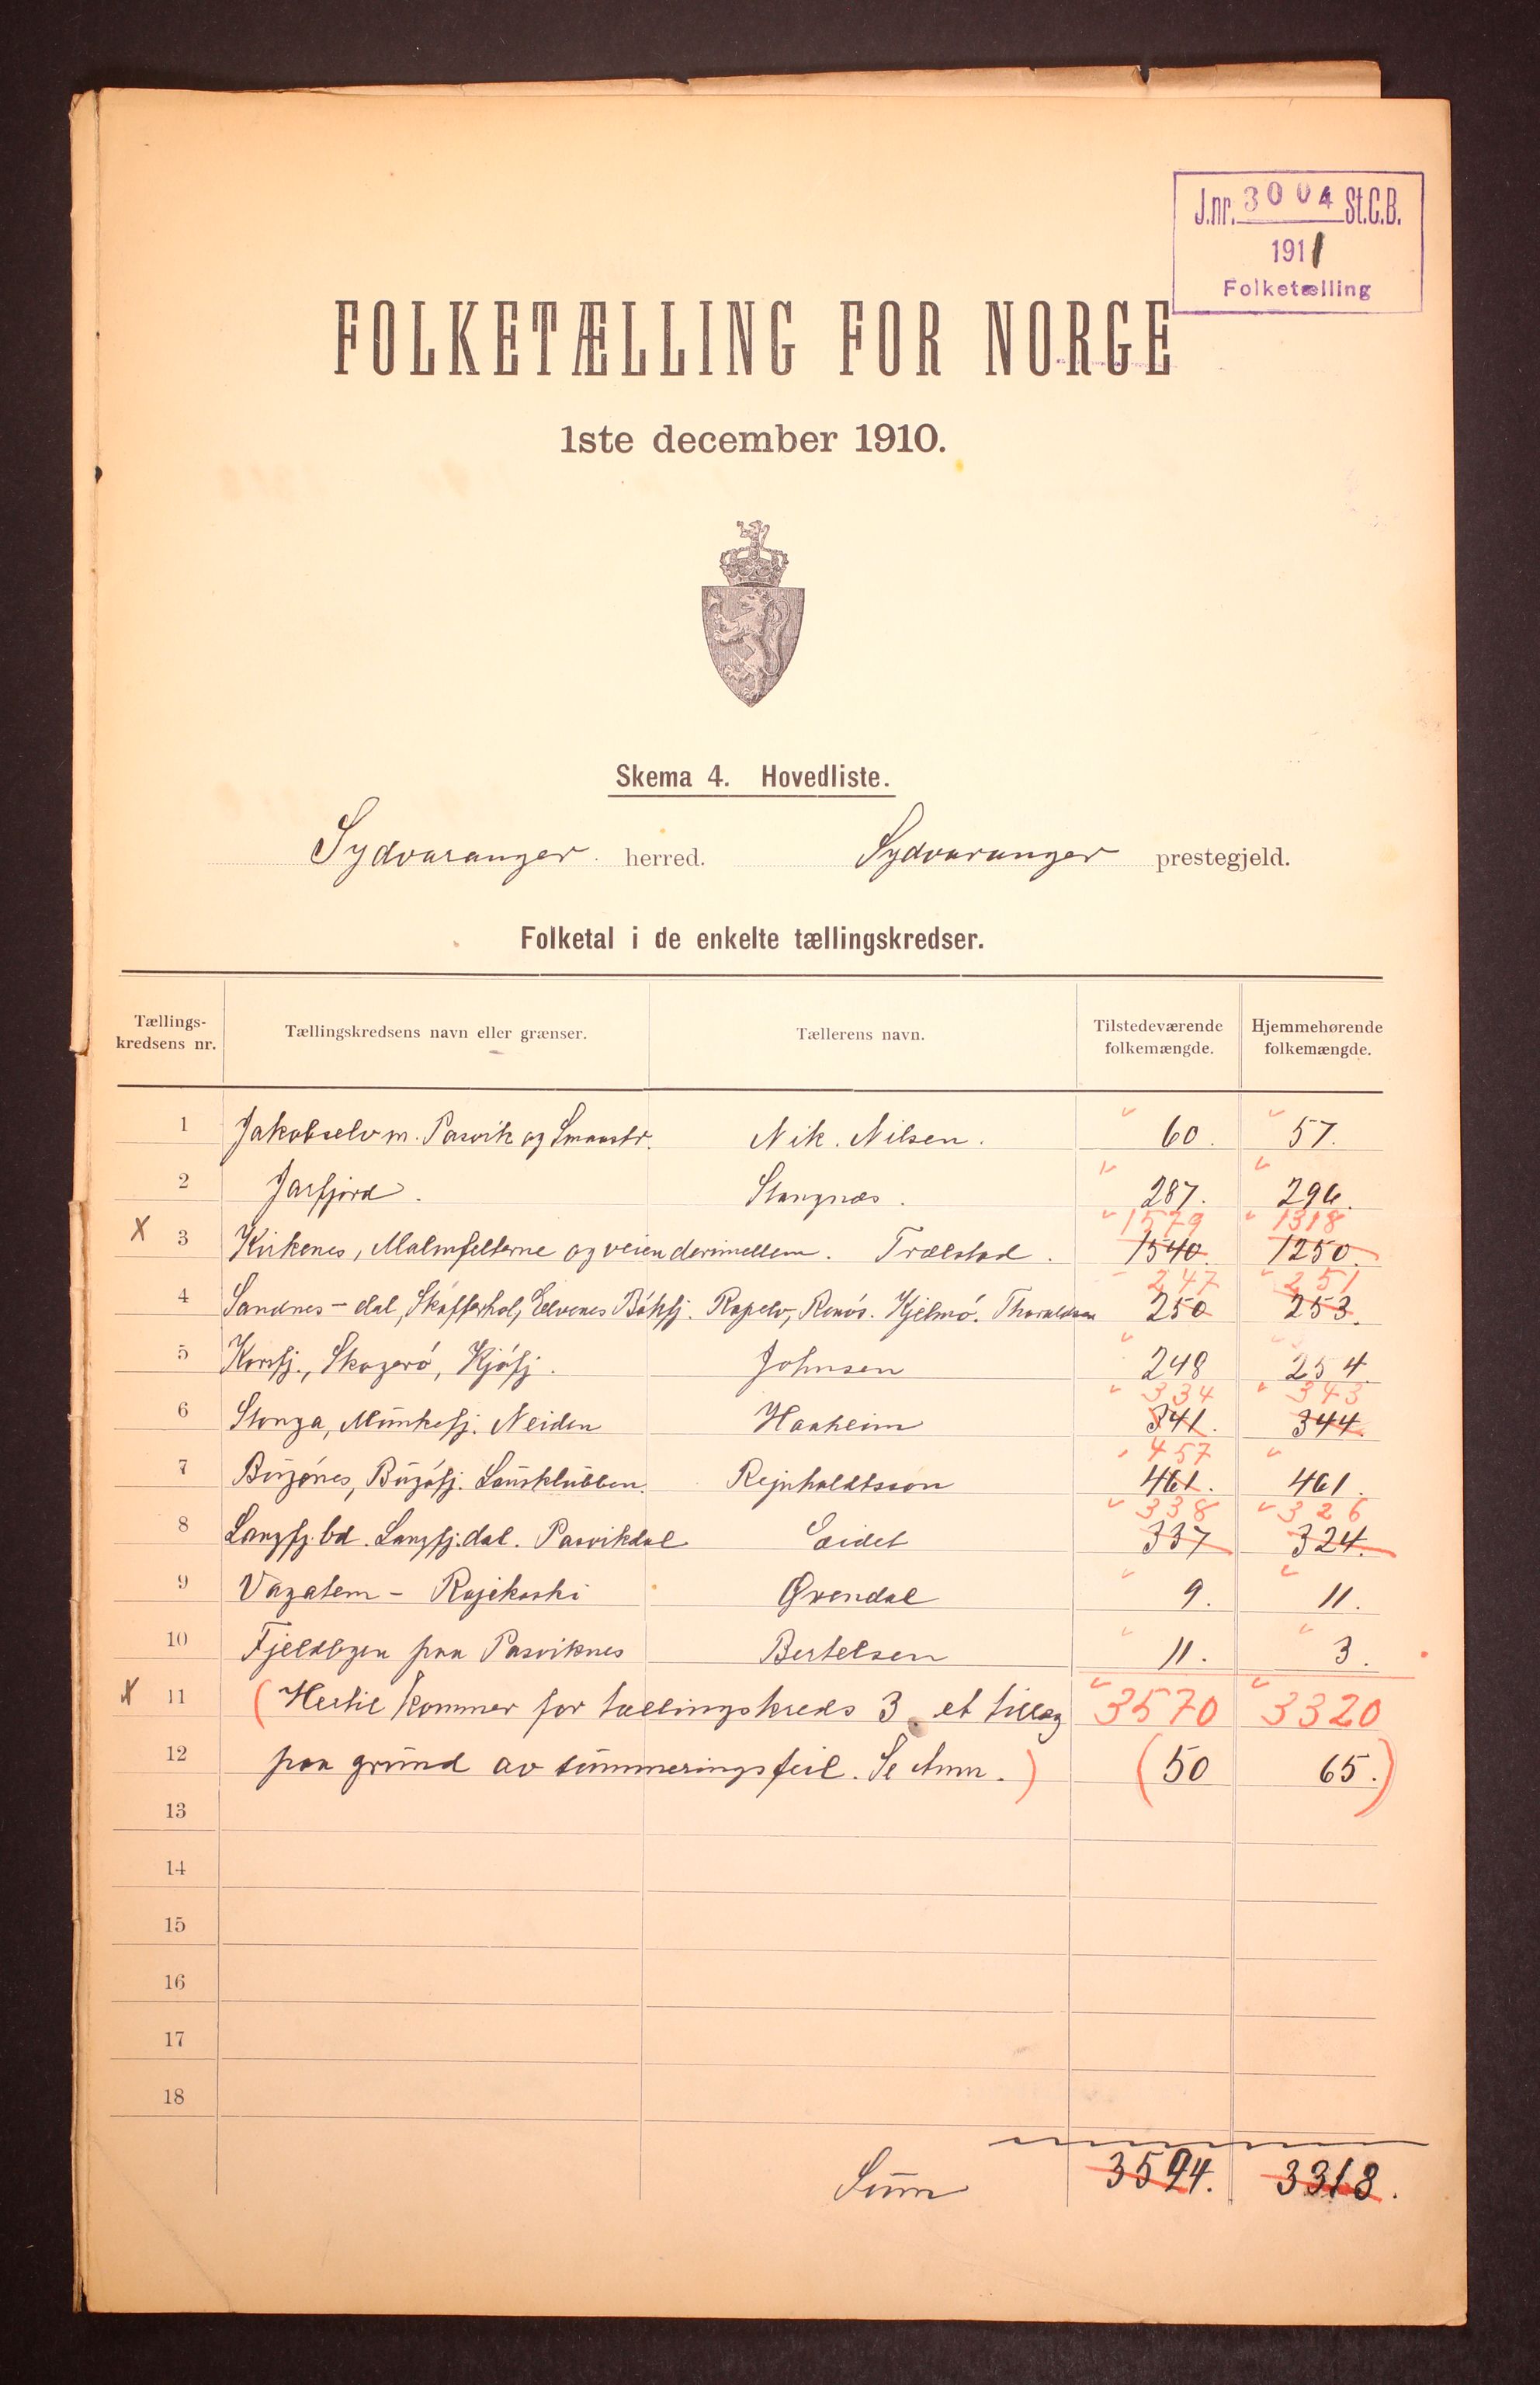 J.nr. 3004 St.C.B.
1911
Folketælling
FOLKETÆLLING FOR NORGE
1ste december 1910.
Skema 4. Hovedliste.
Sydvaranger herred. Sydvaranger prestegjeld.
Folketal i de enkelte tællingskredser.
Tællings-
kredsens nr.
Tællingskredsens navn eller grænser.
Tællerens navn.
Tilstedeværende
folkemængde.
Hjemmehørende
folkemængde.
1 Jakobselv m. Pasvik og Smaastr. Nik. Nilsen. 60. 57.
2 Jarfjord. Stangnæs. 287. 296.
1579 1318
X 3 Kirkenes, Malmfelterne og veien derimellem. Trælstad. 1540 1250.
247 251
4 Sandnes - dal, Skafferhol, Elvenes Bökfj. Ropelv, Renös. Kjelmö. Thoraldsen 250 253.
5 Korsfj., Skogerö, Kjöfj. Johnsen 248 254.
334 343
6 Stonga, Münkefj. Neiden Haaheim 341. 344.
457
7 Bügönes, Bügöfj. Lausklübben. Rejnholdtsson 461. 461.
338 326
8 Langfj. bd. Langfj. dal. Pasvikdal Eidet 337 324.
9 Vagatem - Rajekoski Øvendal 9. 11.
10 Fjeldbyen paa Pasviknes Bertelsen 11. 3.
X 11 (Hertil kommer for tællingskreds 3 et tillæg 3570 3320
12 paa gründ av sümmeringsfeil. Se Anm.) (50 65.)
13
14
15
16
17
18
Süm 3594. 3318.